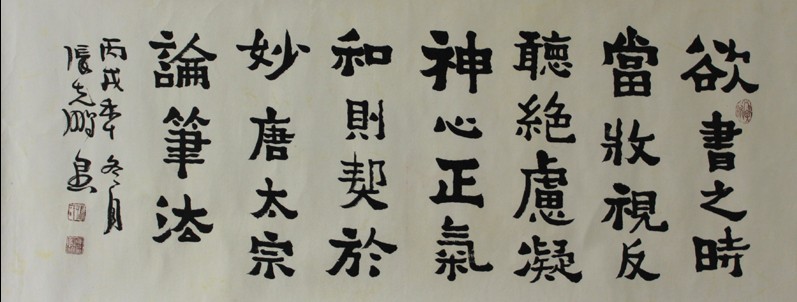 欲書之時
當收視反
聽絶慮凝
神心正氣
和則契於
妙唐太宗
論筆法
丙戌年冬月
張志鵬書